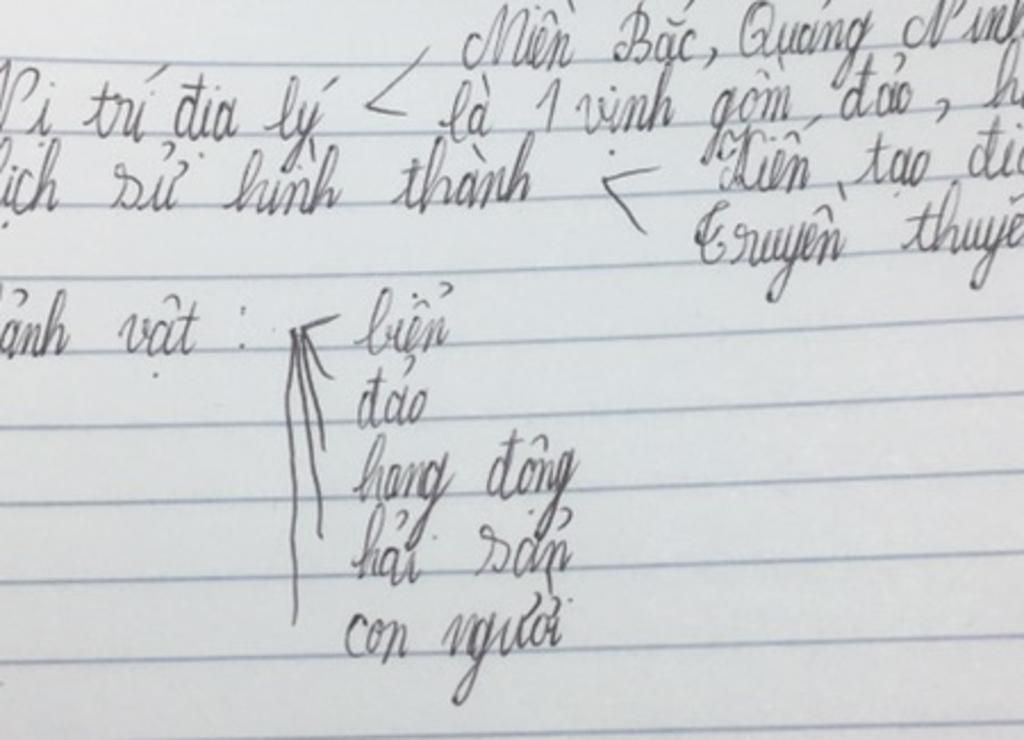 Miền Bắc, Quảng Ninh
Vị trí địa lý < là 1 vịnh gồm đảo,
Lịch sử hình thành < Kiến tạo
truyền thuyết
cảnh vật : biển
đảo
hang động
hải sản
con người